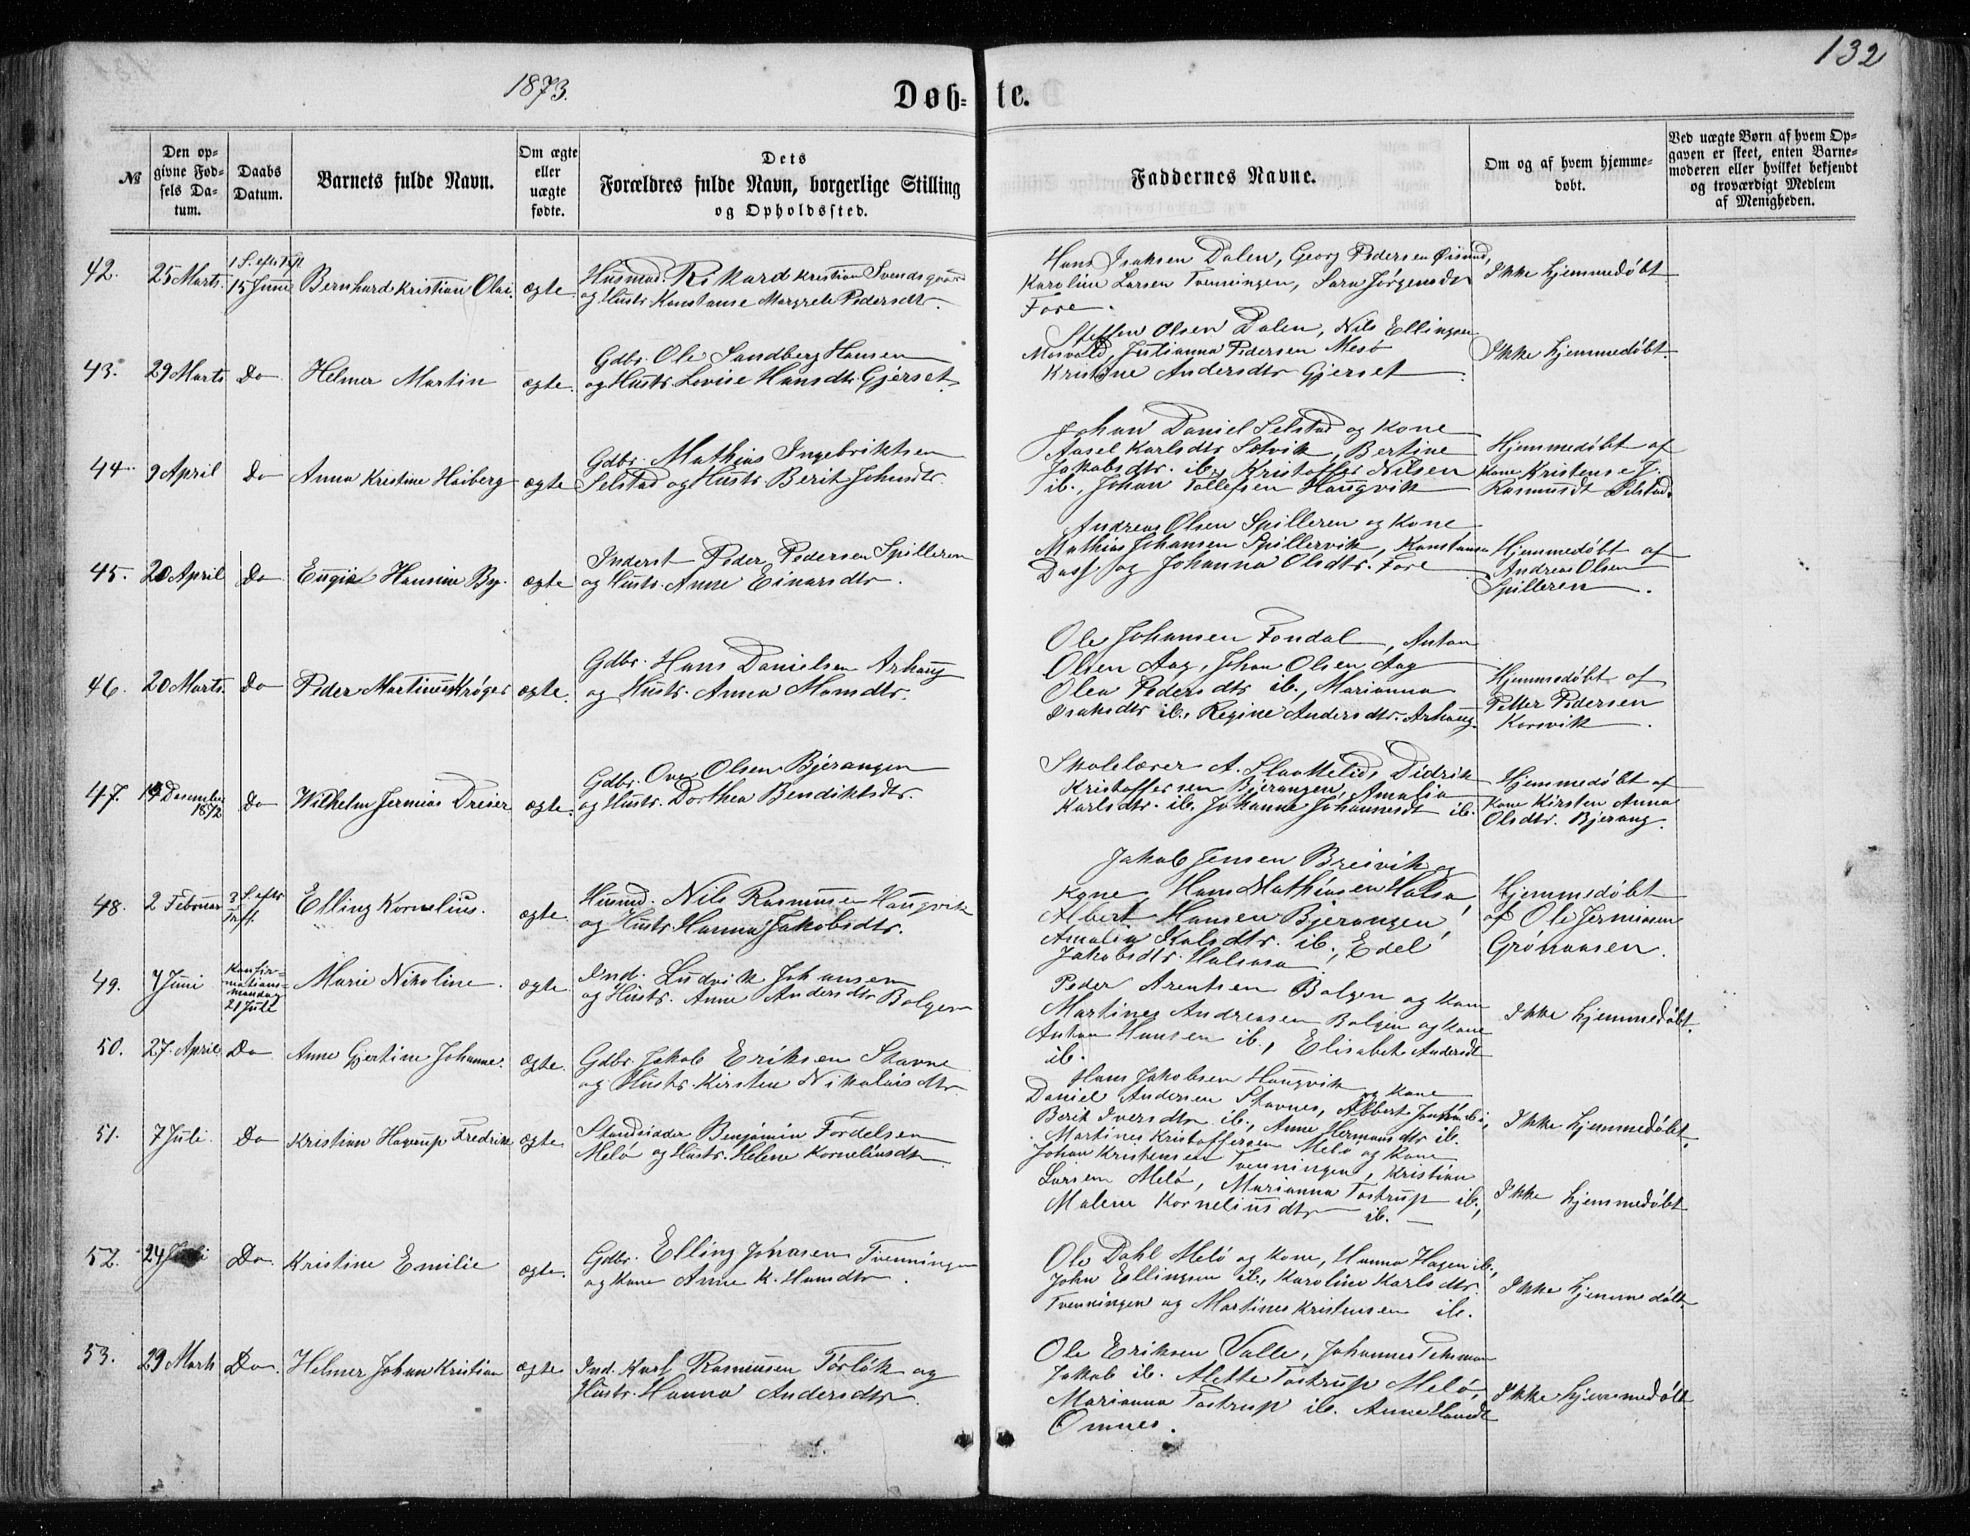 132
1873.
Døb= te.
№
Den op-
givne Fød-
sels Da-
tum.
Daabs
Datum.
Barnets fulde Navn.
Om ægte
eller
uægte
fødte.
Dets
Forældres fulde Navn, borgerlige Stilling
og Opholdssted.
Faddernes Navne.
Om og af hvem hjemme-
døbt.
Ved uægte Børn af hvem Op-
gaven er skeet, enten Barne-
moderen eller hvilket bekjendt
og troværdigt Medlem
af Menigheden.
42. 25 Marts 1 S. eftr Tr̄ft
15 Juni Bernhard Kristian Olai. ægte
Husmd. Rikard Kristian Svendsgaard
og Hustr. Konstanse Margrete Pedersdtr.
Hans Isaksen Dalen, Georg Pedersen Øisund,
Karoline Larsen Tvenningen, Sara Jørgensdtr
Fore.
Ikke hjemmedøbt
43. 29 Marts Do Helmer Martin ægte.
Gdbr. Ole Sandberg Hansen
og Hustr. Lovise Hansdtr. Gjerset.
Steffen Olsen Dalen, Nils Ellingsen
Mosvold, Julianna Pedersen Mesö
Kristine Andersdtr Gjerset
Ikke hjemmedøbt
44. 9 April Do Anna Kristine Heiberg ægte
Gdbr. Mathias Ingebriktsen
Selstad og Hustr. Berit Johnsdtr.
Johan Daniel Selstad og Kone
Aasel Karlsdtr Sætvik, Bertine
Jakobsdtr. ib., Kristoffer Nilsen
ib., Johan Tollefsen Haugvik
Hjemmedøbt af
Kone Kristense J.
Rasmusdt Selstad.
45. 20 April Do Eugia Hansine By. ægte
Inderst Peder Pedersen Spilleren
og Hustr. Anne Einarsdtr.
Andreas Olsen Spilleren og Kone
Mathias Johansen Spillervik, Konstanse
Dass og Johanna Olsdtr. Fore
Hjemmedøbt af
Andreas Olsen
Spilleren.
46. 20 Marts. Do Peder Martinus Krøger ægte.
Gdbr. Hans Danielsen Arhaug
og Hustr. Anna Monsdtr.
Ole Johansen Fondal, Anton
Olsen Aag, Johan Olsen Aag
Olea Pedersdtr ib., Marianna
Isaksdtr ib., Regine Andersdtr. Arhaug.
Hjemmedøbt af
Petter Pedersen
Korsvik.
47. 14 Desember
1872 Do Wilhelm Jermias Dreier ægte.
Gdbr. Ove Olsen Bjerangen
og Hustr. Dorthea Bendiktsdtr.
Skolelærer A. Slaattelid, Didrik
Kristoffersen Bjerangen, Amalia
Karlsdtr. ib. Johanne Johannesdt ib.
Hjemmedøbt af
Kone Kirsten Anna
Olsdtr. Bjerang.
48. 2 Februar 3 S. eftr
Tr̄ft. Elling Kornelius. ægte.
Husmd. Nils Rasmussen Haugvik
og Hustr. Hanna Jakobsdtr.
Jakob Jensen Breivik og
Kone, Hans Mathiasen Halsa,
Albert Hansen Bjerangen,
Amalia Kalsdtr. ib., Edel
Jakobsdtr. Halsaa.
Hjemmedøbt
af Ole Jermiasen
Grönaasen.
49. 7 Juni Konfir-
mations-
mandag
21 Juli Marie Nikoline. ægte.
Ind. Ludvik Johansen
og Hustr. Anne Andersdtr Bolgen
Peder Arentsen Bolgen og Kone
Martines Andreasen Bolgen og Kone
Anton Hansen ib., Elisabet Andersdt
ib.
Ikke hjemmedøbt.
50. 27. April Do Anne Gjertine Johanne. ægte.
Gdbr. Jakob Eriksen Stavne
og Hustr. Kirsten Nikolaisdtr.
Hans Jakobsen Haugvik og Kone
Daniel Andersen Stavnes, Albert
Berit Iversdtr ib., Anne Hermansdtr ib.
Ikke hjemmedøbt.
51. 7 Juli. Do Kristian Hagerup Fredrik ægte.
Strandsidder Benjamin Fordelsen
Melö og Hustr. Helene Korneliusdtr.
Martines Kristoffersen Melö og Kone
Johan Kristensen Tvenningen, Kristian
Larsen Melö, Marianna Tostrup ib.,
Malene Korneliusdtr ib.
Ikke hjemmedøbt
52. 24 Do. Kristine Emilie ægte.
Gdbr. Elling Jonasen Tvenningen
og Kone Anne K. Hansdtr.
Ole Dahl Melö og Kone, Hanna Hagen ib.,
John Ellingsen ib., Karoline Karlsdtr.
Tvenningen og Martines Kristensen ib.
Ikke hjemmedøbt.
53. 29 Marts Do. Helmer Johan Kristian ægte
Ind. Karl Rasmussen Torlök og
Hustr. Hanna Andersdtr.
Ole Eriksen Valle, Johannes
Jakob ib. Alette Tostrup Melö,
Marianna Tostrup ib. Anne Hansdt
Omnes.
Ikke hjemmedøbt